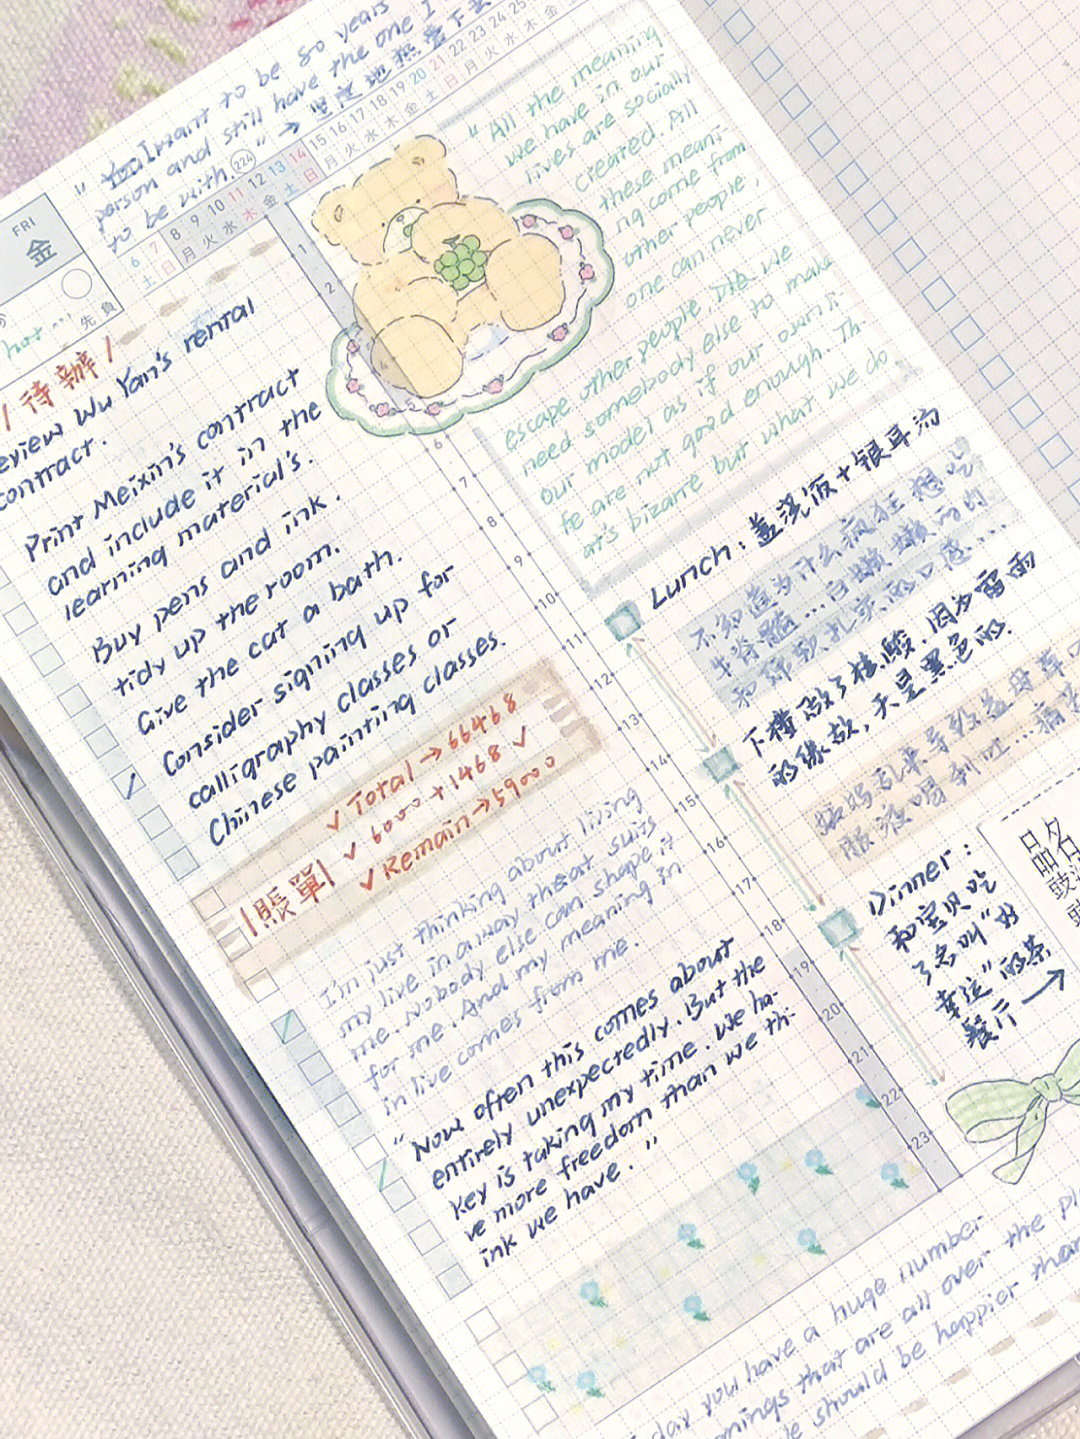 "You want to be 80 years
person and still have the one I
to be with." 224 → 坚定地热爱下去
6 7 8 9 10 11 12 13 14 15 16 17 18 19 20 21 22 23 24 25
土 日 月 火 水 木 金 土 日 月 火 水 木 金 土 日 月 火 水 木
FRI
金
先負
hot
待辦
eview Wu Yan's rental
contract.
Print Meixin's contract
and include it in the
learning material's.
Buy pens and ink.
tidy up the room.
Give the cat a bath.
Consider signing up for
calligraphy classes or
Chinese painting classes.
賬單
✓ Total → 66468
✓ 6000 + 1468 ✓
✓ Remain → 59000
I'm just thinking about living
my live in a way that suits
me. Nobody else can shape it
for me. And my meaning in
in live comes from me.
"Now often this comes about
entirely unexpectedly. But the
key is taking my time. We ha-
ve more freedom than we th-
ink we have."
1
2
4
5
6
7
8
9
10
11
12
13
14
15
16
17
18
19
20
21
22
23
"All the meaning
we have in our
lives are socially
created. All
these meani-
ng come from
other people,
one can never
escape other people. We
need somebody else to make
our model as if our own li-
fe are not good enough. Th-
at's bizarre but what we do
Lunch: 盖浇饭+银耳汤
不知道为什么疯狂想吃
下楼做了核酸,因为雷雨
的缘故,天是黑色的.
Dinner:
和宝贝吃
了名叫"好
幸运"的茶
餐厅 →
品名
day you have a huge number
omings that are all over the pl
e should be happier than